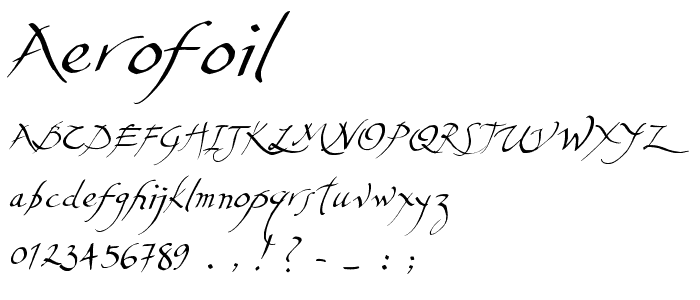 Aerofoil
ABCDEFGHIJKLMNOPQRSTUVWXYZ
abcdefghijklmnopqrstuvwxyz
0123456789 . , ! ? - _ : ;